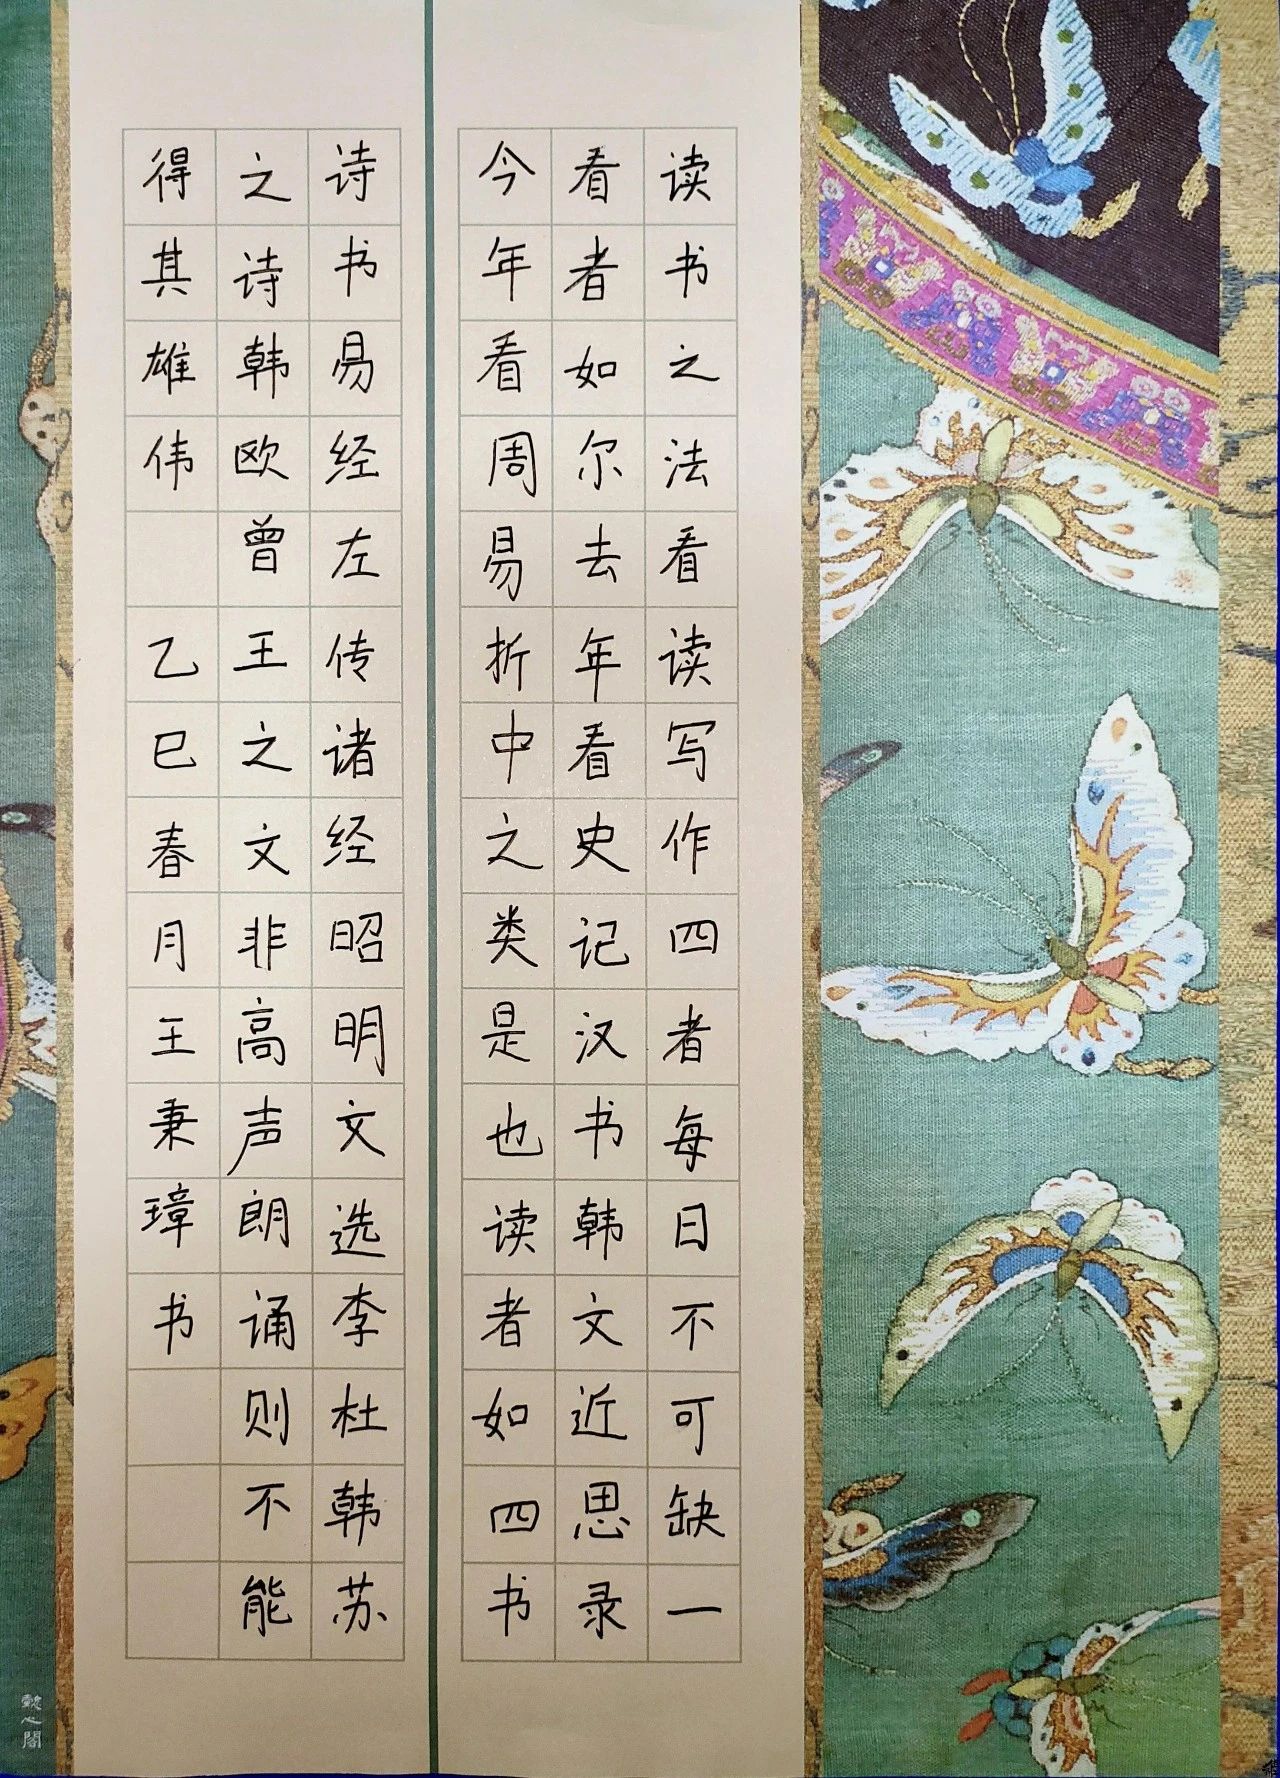 读书之法看读写作四者每日不可缺一
看者如尔去年看史记汉书韩文近思录
今年看周易折中之类是也读者如四书
诗书易经左传诸经昭明文选李杜韩苏
之诗韩欧曾王之文非高声朗诵则不能
得其雄伟 乙巳春月王秉璋书
懿心阁